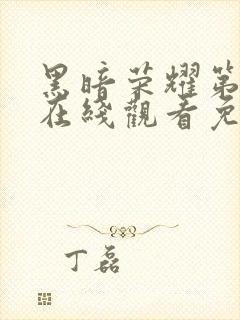 黑暗荣耀第
在綫觀看免
丁磊